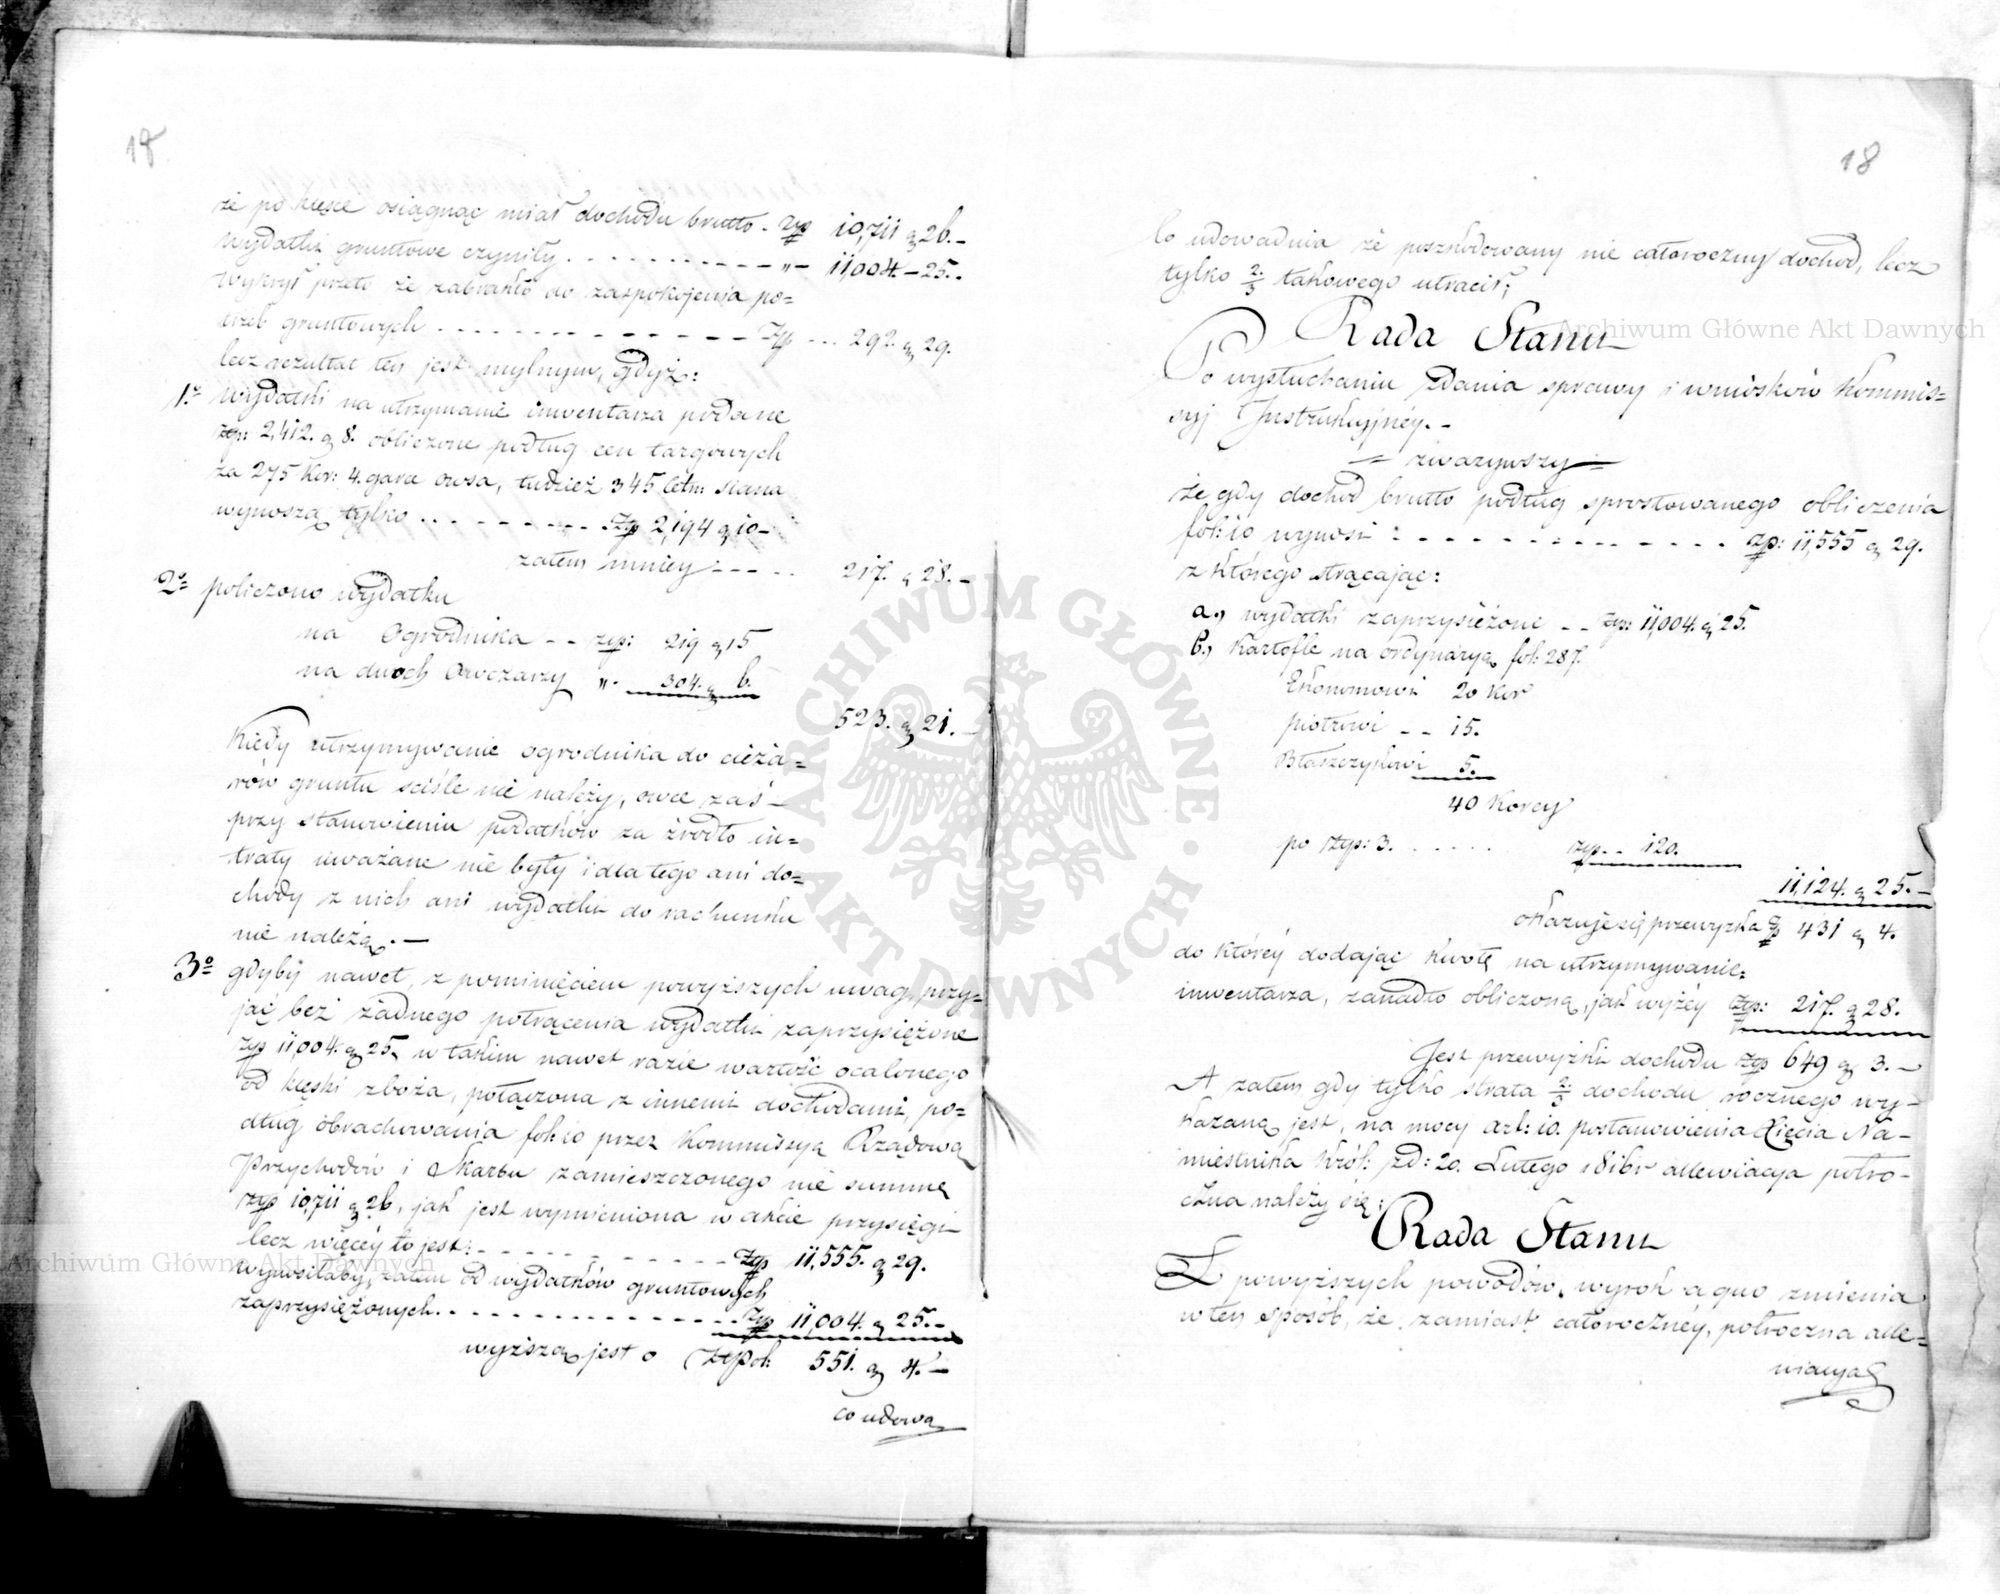 18
że po klęsce osiągnąć miał dochodu brutto - złp 10,711 g 26.-
wydatki gruntowe czyniły . . . . . . . - - - - " - 11,004 - 25..
wykrył przeto że zabrakło do zaspokojenia po=
trzeb gruntowych . . . . - - - - - - - Złp ... 292. g 29.
lecz rezultat ten jest mylnym, gdyż:
1.o wydatki na utrzymanie inwentarza podane
złp: 2,412. g 8. obliczone podług cen targowych
za 275 Kor: 4. garce owsa, tudzież 345 Cetn: siana
wynoszą tylko . . . - - - - - . . Złp 2,194 g 10 -
zatem mniey : - - - . . 217. g 28. -
2o policzono wydatku
na Ogrodnika - - złp: 219 g 15
na dwóch Owczarzy ". 304. g 6.
523. g 21. -
Kiedy utrzymywanie ogrodnika do cięża=
rów gruntu ściśle nie należy, owce zaś -
przy stanowieniu podatków za źrodło in=
traty uważane nie były i dla tego ani do=
chody z nich ani wydatki do rachunku
nie należą. -
3o gdyby nawet, z pominięciem powyższych uwag, przy=
jąć bez żadnego potrącenia wydatki zaprzysiężone
złp 11,004. g 25, w takim nawet razie wartość ocalonego
od klęski zboża, połączona z innemi dochodami, po=
dług obrachowania fol: 10 przez Kommissyą Rządową
Przychodów i Skarbu zamieszczonego nie summę
złp 10,711 g 26, jak jest wymieniona w akcie przysięgi
lecz więcéy to jest: - - - - - - - - - - Złp 11,555. g 29.
wynosiłaby, zatem od wydatków gruntowych
zaprzysiężonych. . - - - - - - - - - - - Złp 11,004. g 25. -
wyższą jest o Złpol: 551. g 4. -
co udowa
18
co udowadnia że poszkodowany nie całoroczny dochód, lecz
tylko 2/3 takowego utracił;
Rada Stanu
Po wysłuchaniu zdania sprawy i wniosków Kommis=
syj Instrukcyjnéy. -
= zważywszy =
że gdy dochód brutto podług sprostowanego obliczenia
fol: 10 wynosi : - - - - - - - - - - - . złp: 11,555 g 29.
z którego strącając:
a., wydatki zaprzysiężone - - złp: 11,004. g 25.
b., Kartofle na ordynaryą fol: 287.
Ekonomowi 20 Kor
piotrowi - - 15.
Błaszczykowi 5.
40 Korcy
po złp: 3. . . . . . złp. . 120.
11,124. g 25. -
okazuje się przewyżka złp 431 g 4.
do któréy dodając kwotę na utrzymywanie=
inwentarza, zanadto obliczoną, jak wyżéy złp: 217. g 28.
Jest przewyżki dochodu złp 649 g 3. -
A zatem gdy tylko strata 2/3 dochodu rocznego wy-
kazaną jest, na mocy art: 10. postanowienia Xięcia Na-
miestnika Król: zd: 20. Lutego 1816r allewiacya półro-
czna należy się;
Rada Stanu
Z powyższych powodów, wyrok a quo zmienia
w ten sposób, że zamiast całorocznéy, półroczna alle=
wiacya